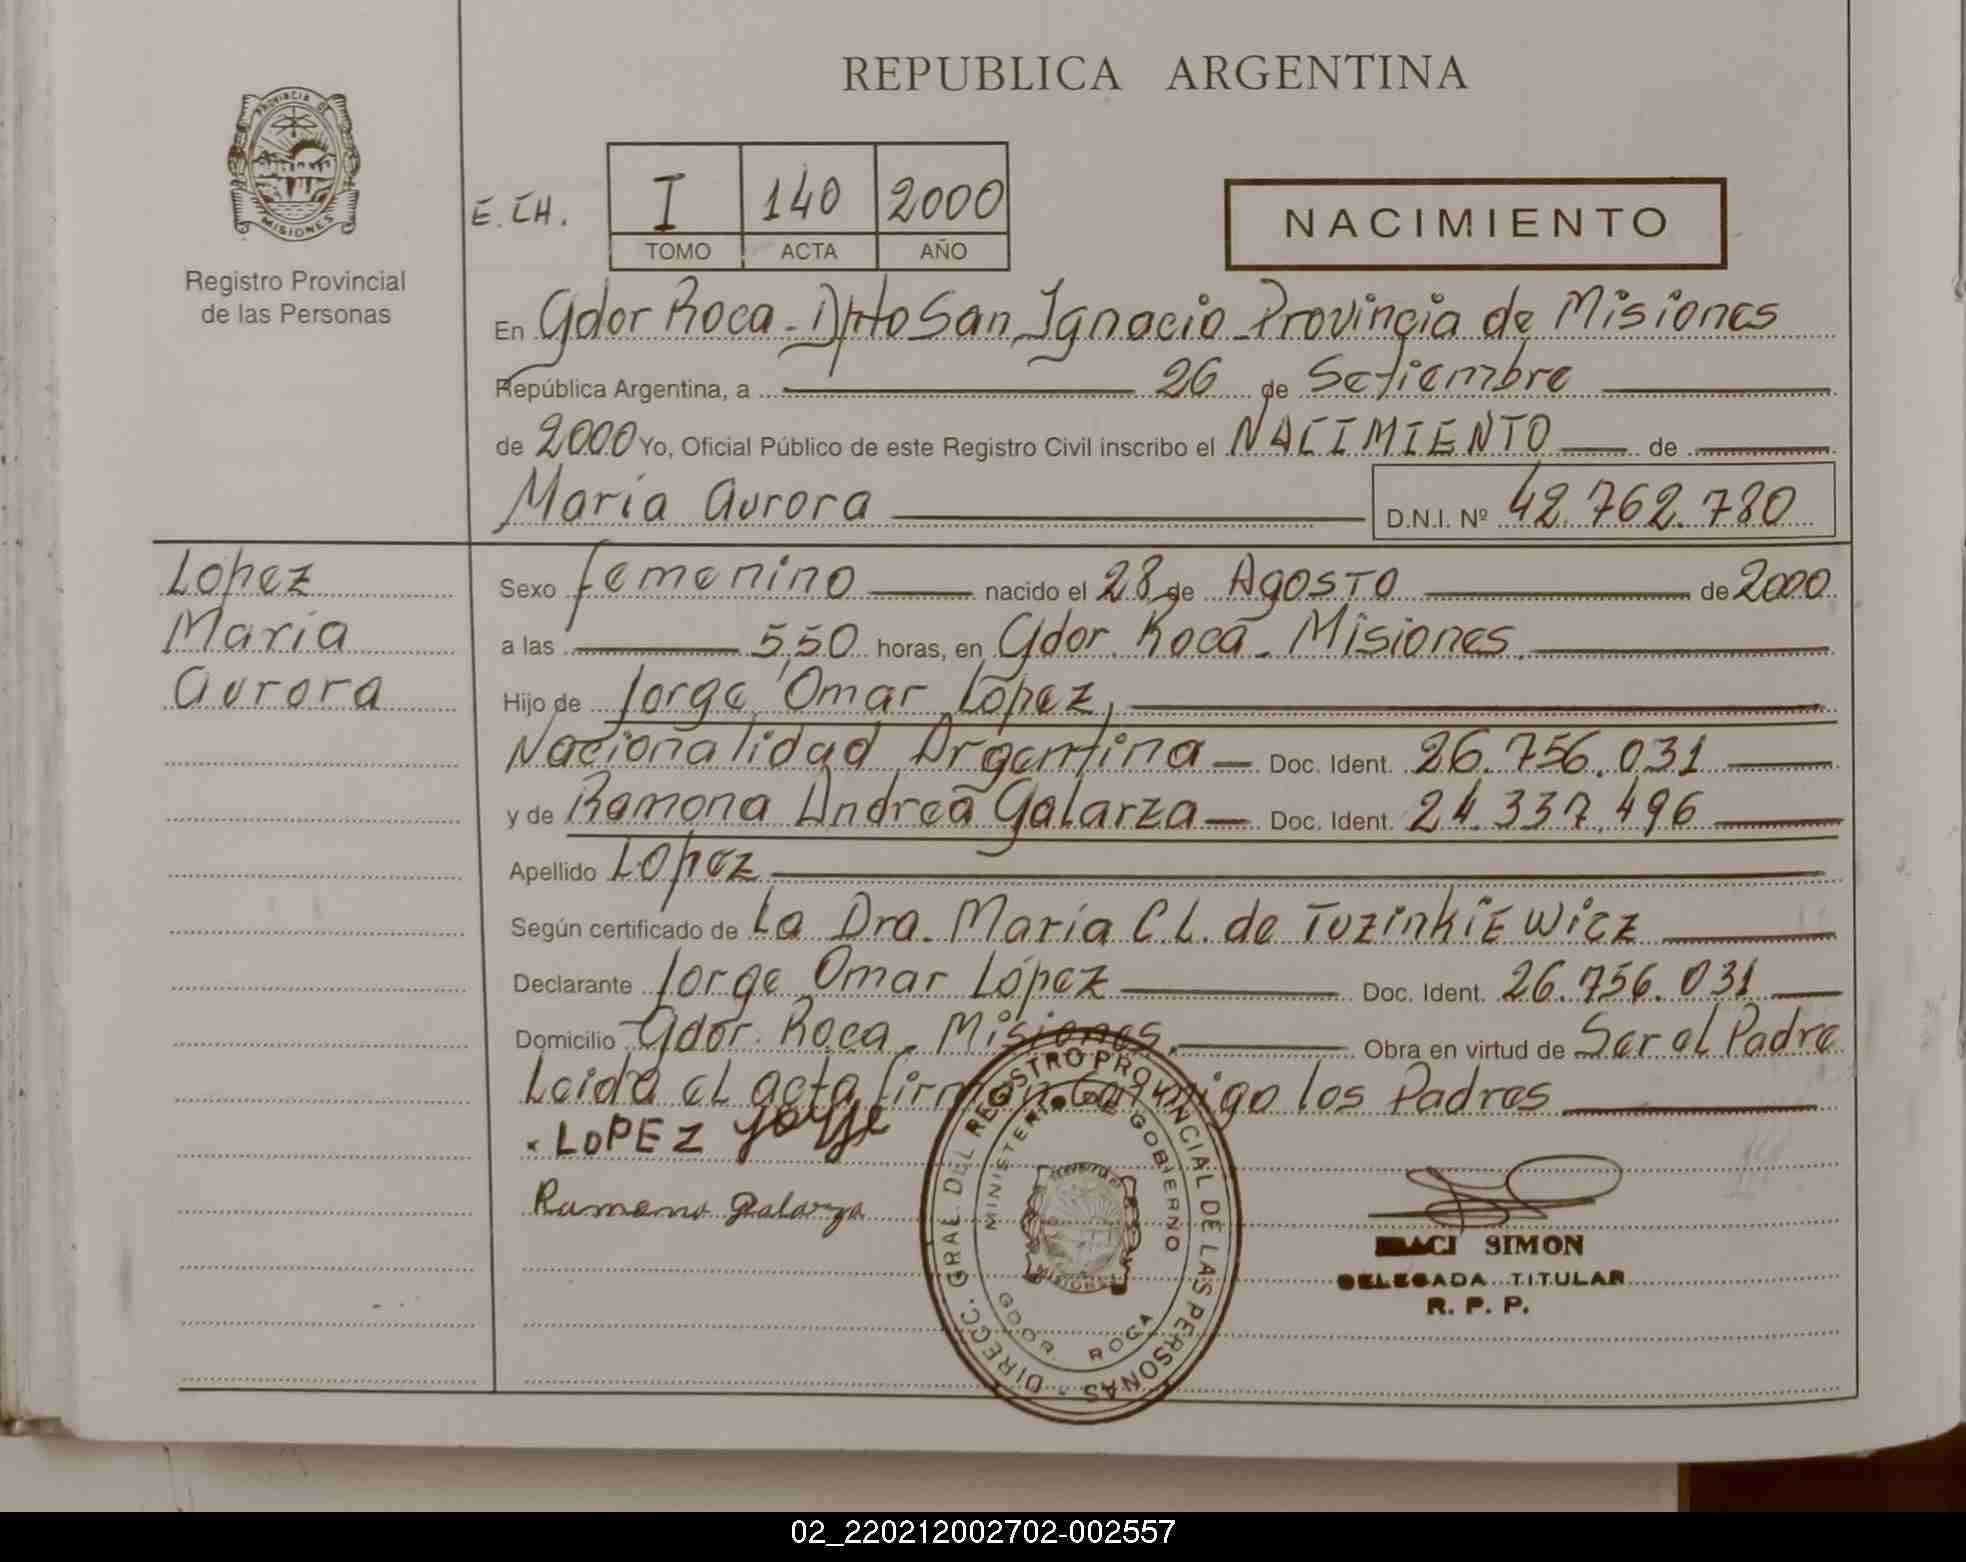 REPUBLICA ARGENTINA
PROVINCIA DE
MISIONES
Registro Provincial
de las Personas
E. CH.
I 140 2000
TOMO ACTA AÑO
NACIMIENTO
En Gdor Roca - Dpto San Ignacio - Provincia de Misiones
República Argentina, a 26 de Setiembre
de 2000 Yo, Oficial Público de este Registro Civil inscribo el NACIMIENTO de
Maria Aurora D.N.I. Nº 42.762.780
Lopez
Maria
Aurora
Sexo femenino nacido el 28 de Agosto de 2000
a las 5,50 horas, en Gdor. Roca - Misiones
Hijo de Jorge Omar López,
Nacionalidad Argentina - Doc. Ident. 26.756.031
y de Ramona Andrea Galarza - Doc. Ident. 24.337.496
Apellido López
Según certificado de La Dra. Maria C.L. de TuzinkiEwicz
Declarante Jorge Omar López Doc. Ident. 26.756.031
Domicilio Gdor. Roca - Misiones. Obra en virtud de Ser el Padre
Leida el acta firman conmigo los Padres
LOPEZ Jorge
Ramona Galarza
DIRECC. GRAL. DEL REGISTRO PROVINCIAL DE LAS PERSONAS -
MINISTERIO DE GOBIERNO
MISIONES
GDOR. ROCA
SIMON
DELEGADA TITULAR
R. P. P.
02_220212002702-002557